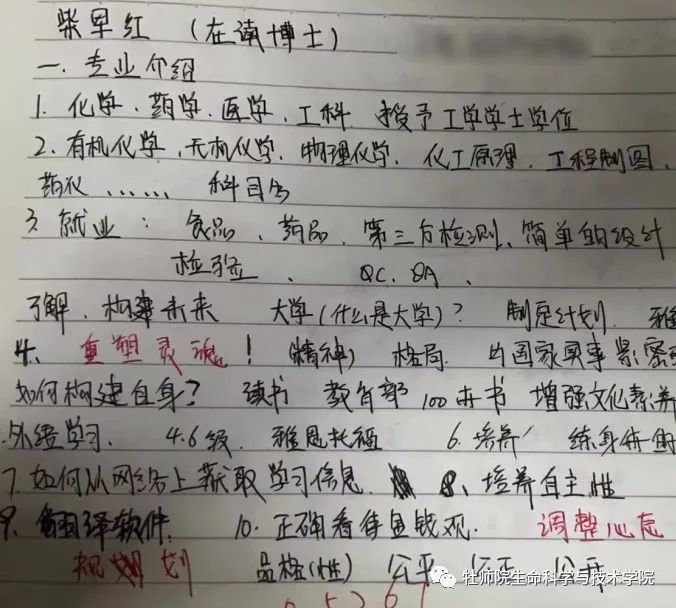 柴早红 (在读博士)
一. 专业介绍
1. 化学. 药学. 医学. 工科. 授予工学学士学位
2. 有机化学.无机化学. 物理化学. 化工原理. 工程制图.
药仪 ...... 科目多
3. 就业: 食品. 药品. 第三方检测、简单的设计
检验 . QC. QA.
了解. 构建未来 大学(什么是大学)? 制定计划. 雅
4. 重塑灵魂! (精神) 格局. 与国家实事紧密
如何构建自身? 读书 教育部100本书 增强文化素养
外语学习. 4.6级. 雅思托福 6. 培养 练身体
7. 如何从网络上获取学习信息. 8、培养自主性
9. 翻译软件. 10. 正确看待金钱观. 调整心态
规划 品格(性) 公平 公正 公开
牡师院生命科学与技术学院